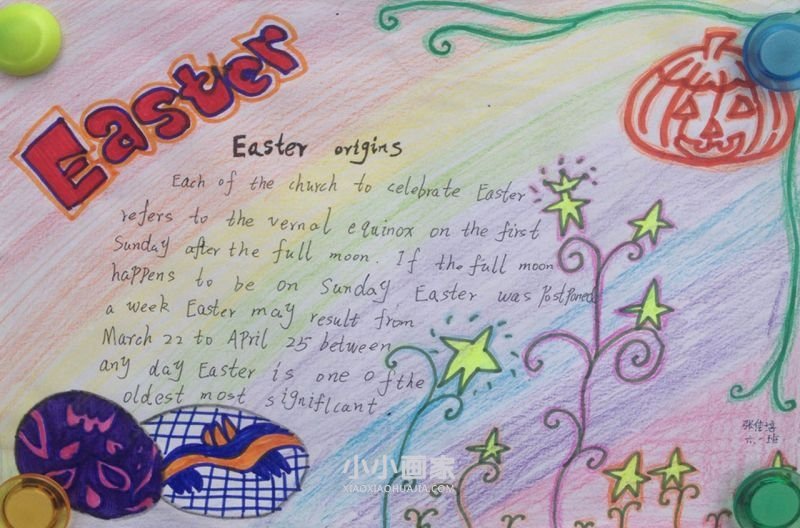 Easter
Easter origins
Each of the church to celebrate Easter
refers to the vernal equinox on the first
Sunday after the full moon. If the full moon
happens to be on Sunday Easter was Postponed
a week Easter may result from
March 22 to April 25 between
any day Easter is one of the
oldest most significant
张佳培
六.一班
小小画家
XIAOXIAOHUAJIA.COM